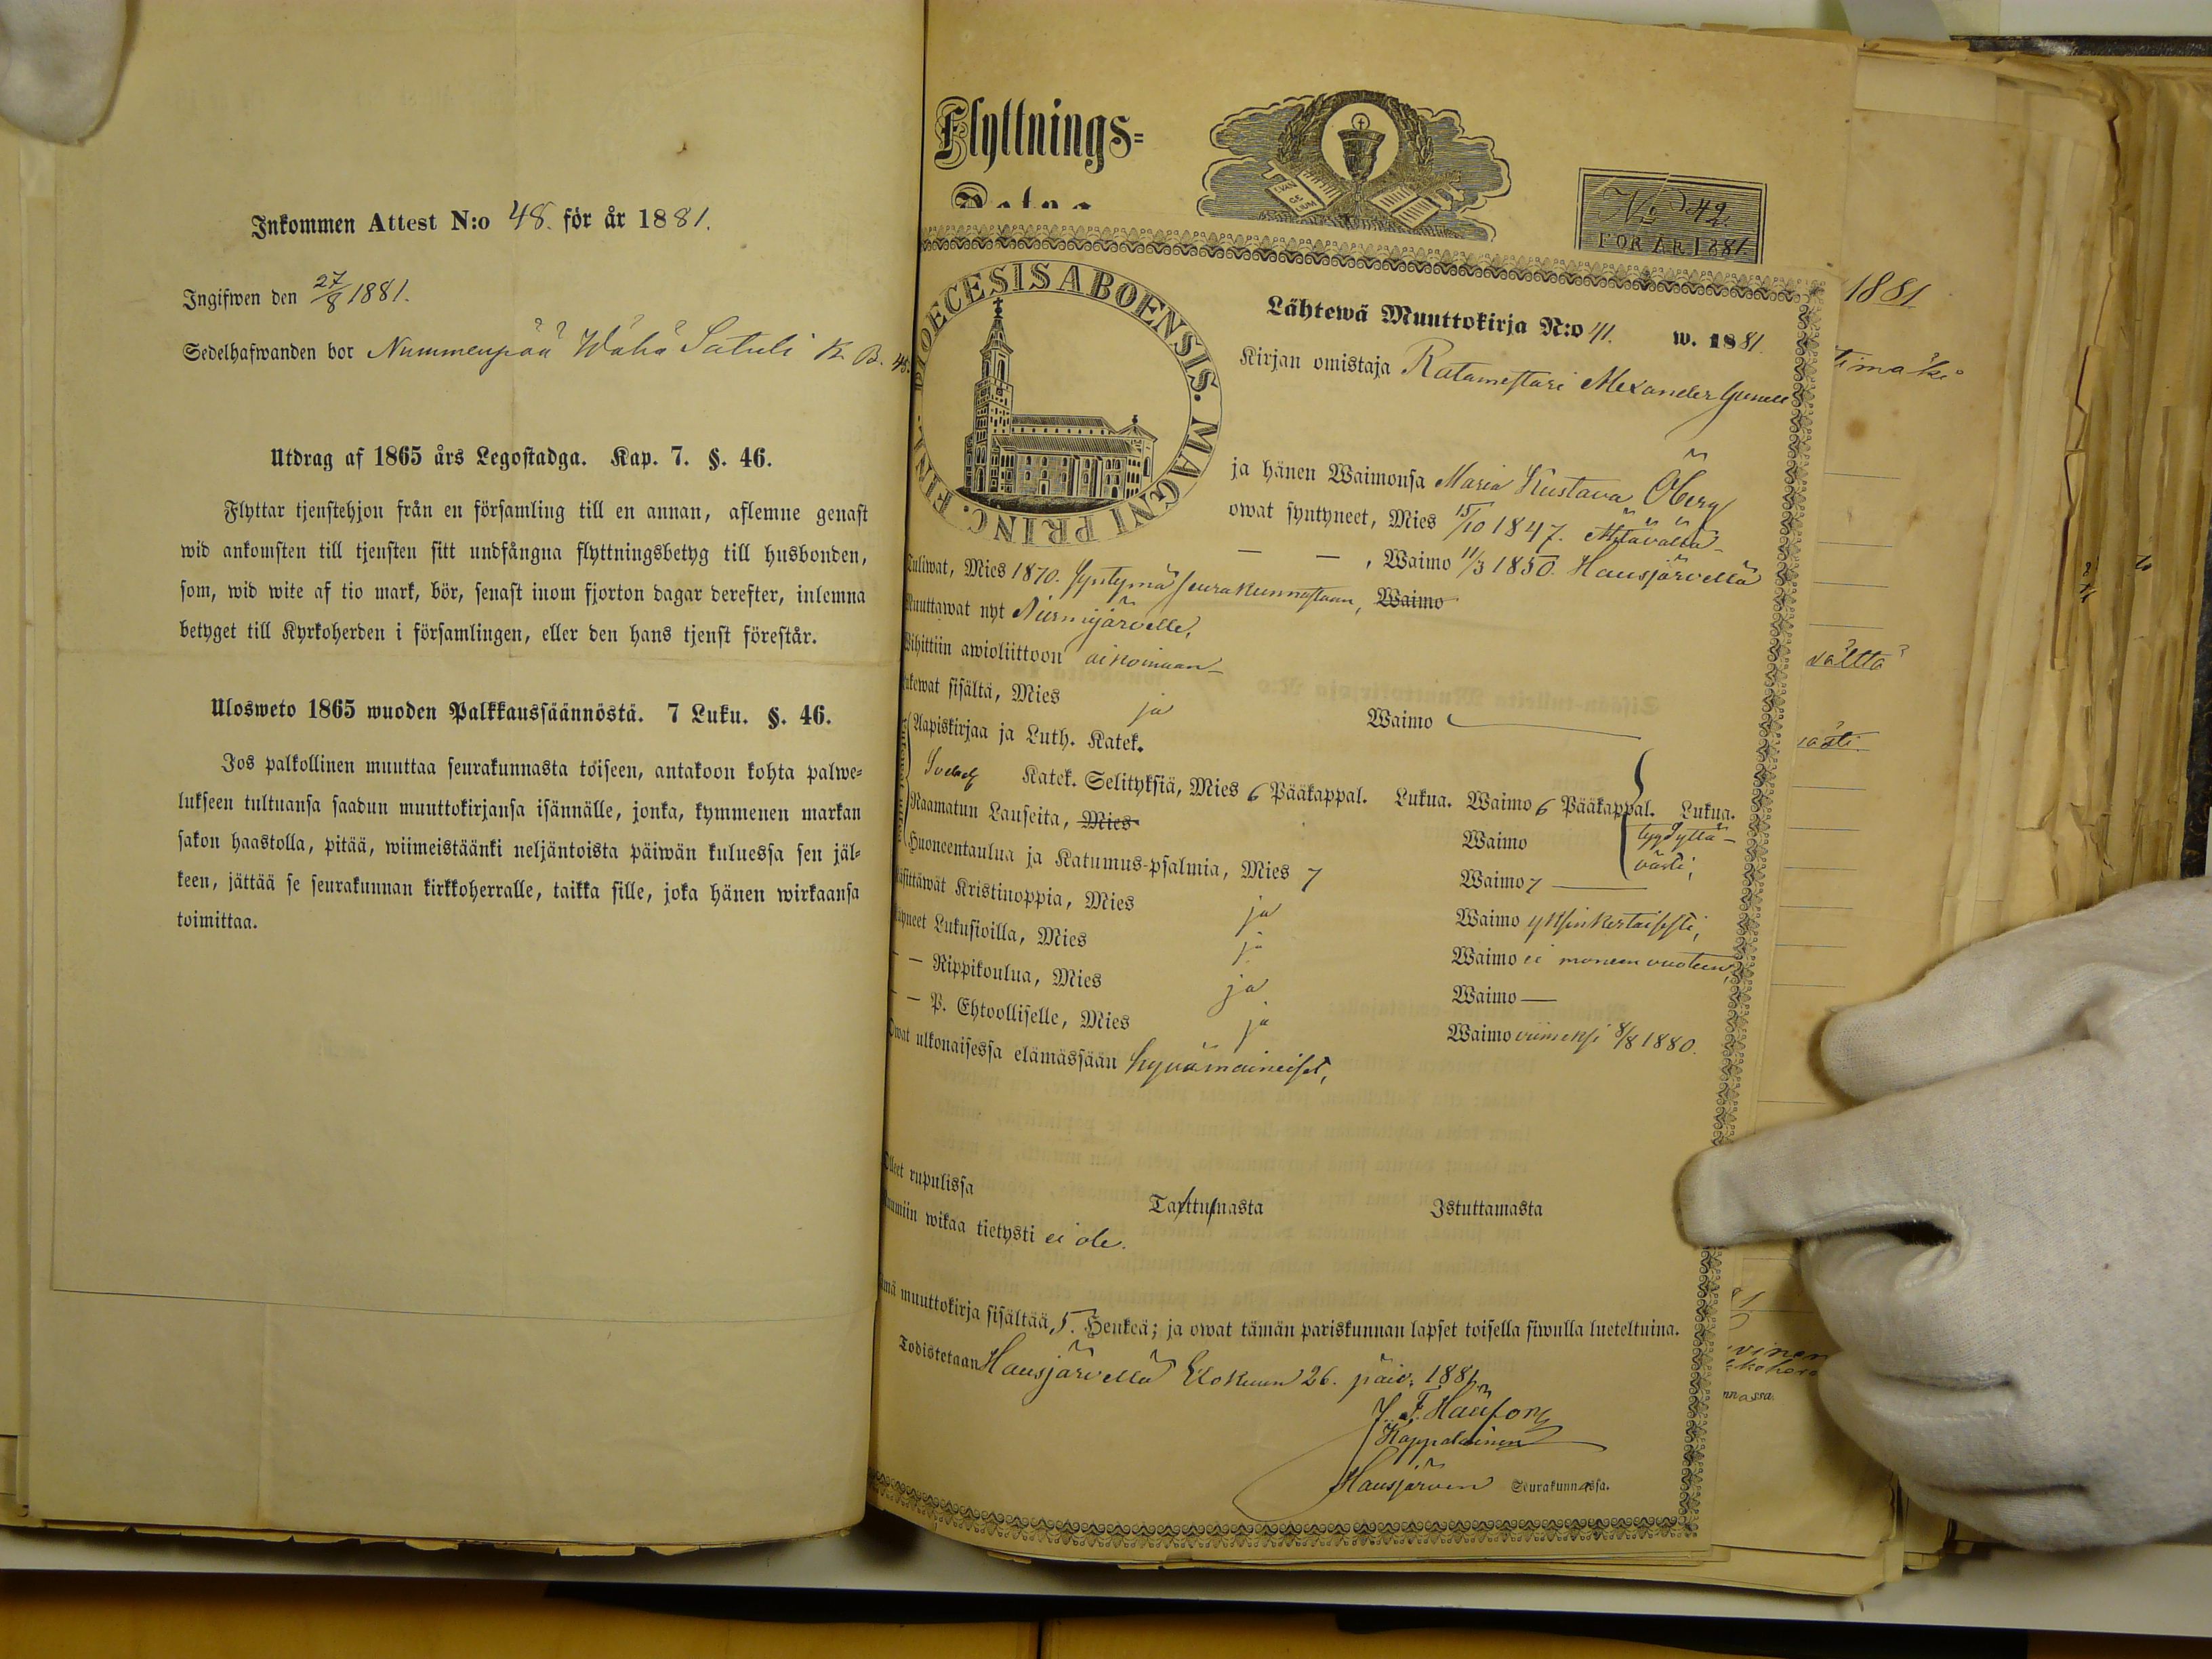 Inkommen Attest N:o 48. för år 1881.
Ingifwen den 27/8 1881.
Sedelhafwanden bor Nummenpää Wähä Satuli K. B. 48.
Utdrag af 1865 års Legostadga. Kap. 7. §. 46.
Flyttar tjenstehjon från en församling till en annan, aflemne genast
wid ankomsten till tjensten sitt undfångna flyttningsbetyg till husbonden,
som, wid wite af tio mark, bör, senast inom fjorton dagar derefter, inlemna
betyget till Kyrkoherden i församlingen, eller den hans tjenst förestår.
Ulosweto 1865 wuoden Palkkaussäännöstä. 7 Luku. §. 46.
Jos palkollinen muuttaa seurakunnasta toiseen, antakoon kohta palwe-
lukseen tultuansa saadun muuttokirjansa isännälle, jonka, kymmenen markan
sakon haastolla, pitää, wiimeistäänki neljäntoista päiwän kuluessa sen jäl-
keen, jättää se seurakunnan kirkkoherralle, taikka sille, joka hänen wirkaansa
toimittaa.
Flyttnings-
EVAN GE LIUM
No 42.
FÖR ÅR 1881.
DIOECESIS ABOENSIS. MAGNI PRINC. FINL.
Lähtewä Muuttokirja N:o 41. w. 1881.
Kirjan omistaja Ratamestari Alexander
ja hänen Waimonsa Maria Kustava Öberg
owat syntyneet, Mies 15/10 1847.
— — , Waimo 11/3 1850. Hausjärvellä
Tuliwat, Mies 1870. Syntymä seurakunnastaan, Waimo
Muuttawat nyt Nurmijärvelle,
Wihittiin awioliittoon aikoinaan
Lukewat sisältä, Mies ja Waimo —
Aapiskirjaa ja Luth. Katek.
Katek. Selityksiä, Mies 6 Pääkappal. Lukua. Waimo 6 Pääkappal. Lukua.
Raamatun Lauseita, Mies Waimo tyydyttä-
västi;
Huoneentaulua ja Katumus-psalmia, Mies 7 Waimo 7 —
Käsittäwät Kristinoppia, Mies ja Waimo yksinkertaisesti,
Käyneet Lukusioilla, Mies ja Waimo ei moneen vuoteen,
— — Rippikoulua, Mies ja Waimo —
— — P. Ehtoolliselle, Mies ja Waimo viimeksi 8/8 1880.
Owat ulkonaisessa elämässään hyvämaineiset,
Olleet rupulissa Tarttumasta Istuttamasta
Ruumiin wikaa tietysti ei ole.
Tämä muuttokirja sisältää 5. Henkeä; ja owat tämän pariskunnan lapset toisella siwulla lueteltuina.
Todistetaan Hausjärvellä Elokuun 26. päiv. 1881.
J. F.
Kappalainen
Hausjärven Seurakunnassa.
1881.